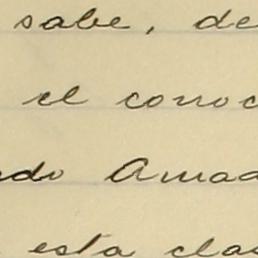 sabe, de
el conoc
ndo Amad
esta clas